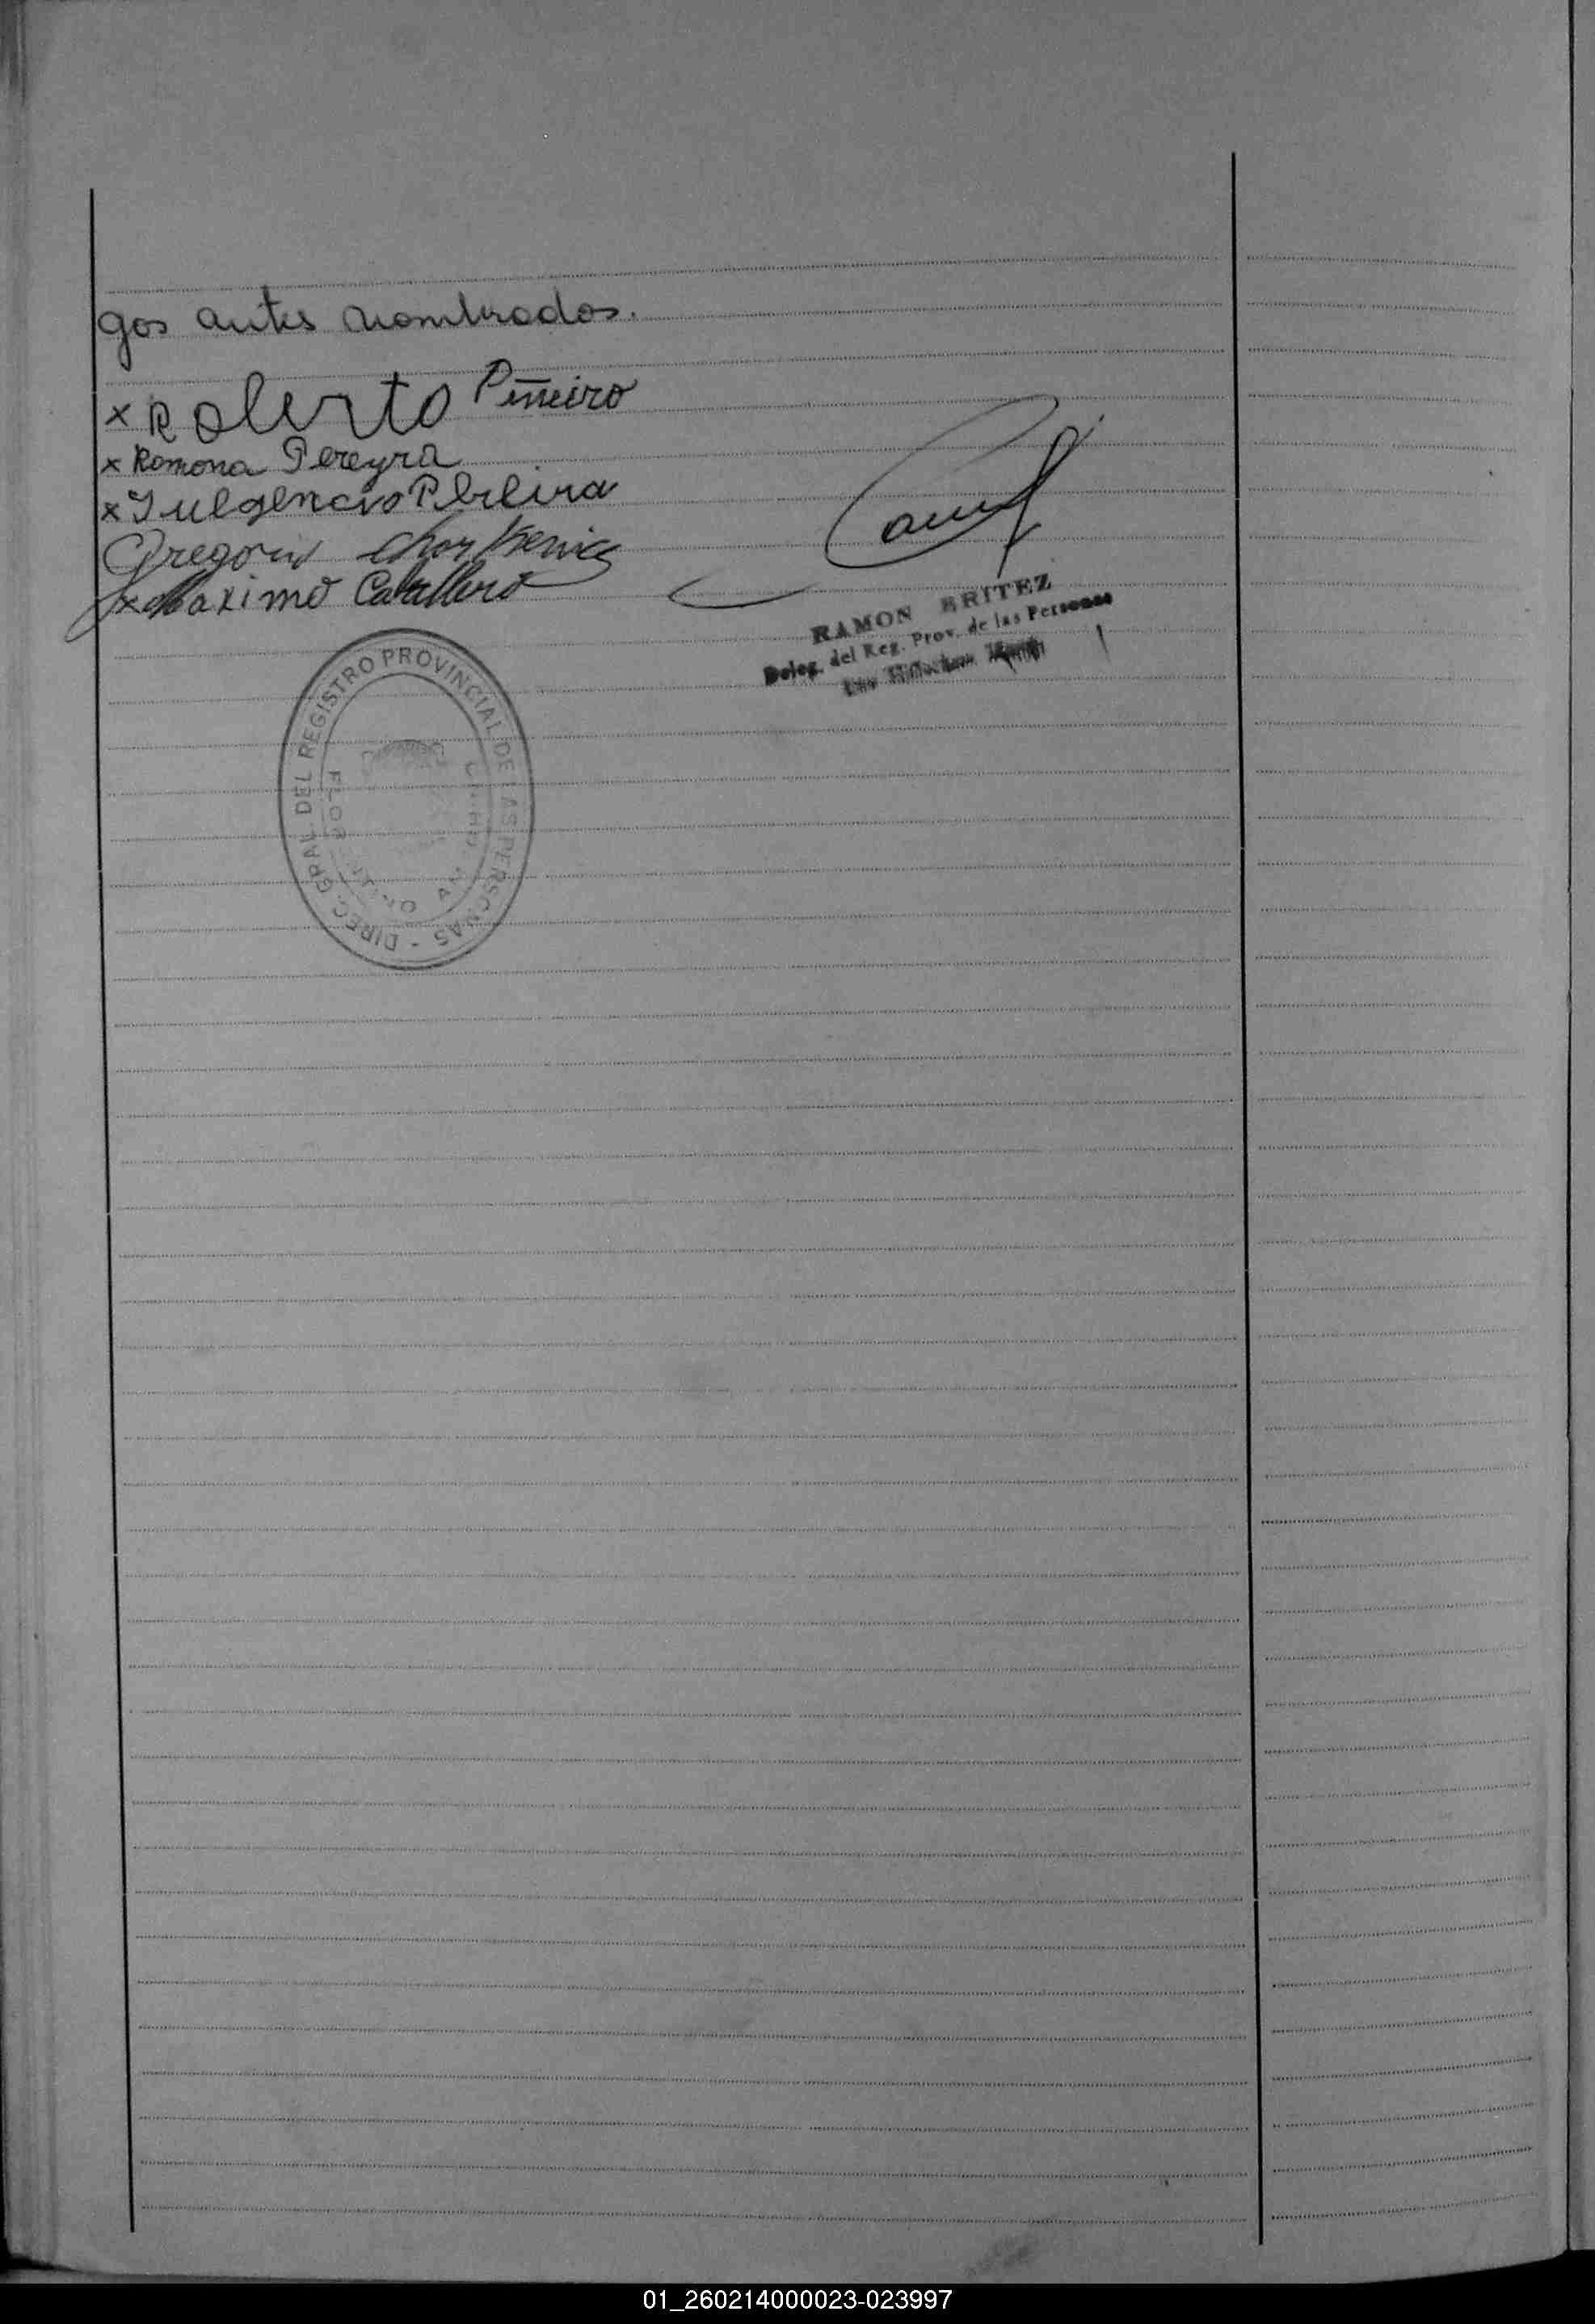 gos antes nombrados.
x Roberto Piñeiro
x Ramona Pereyra
x Fulgencio Pereira
Gregorio
x Maximo Caballero
RAMON BRITEZ
Deleg. del Reg. Prov. de las Personas
DIREC. GRAL. DEL REGISTRO PROVINCIAL DE LAS PERSONAS -
01_260214000023-023997